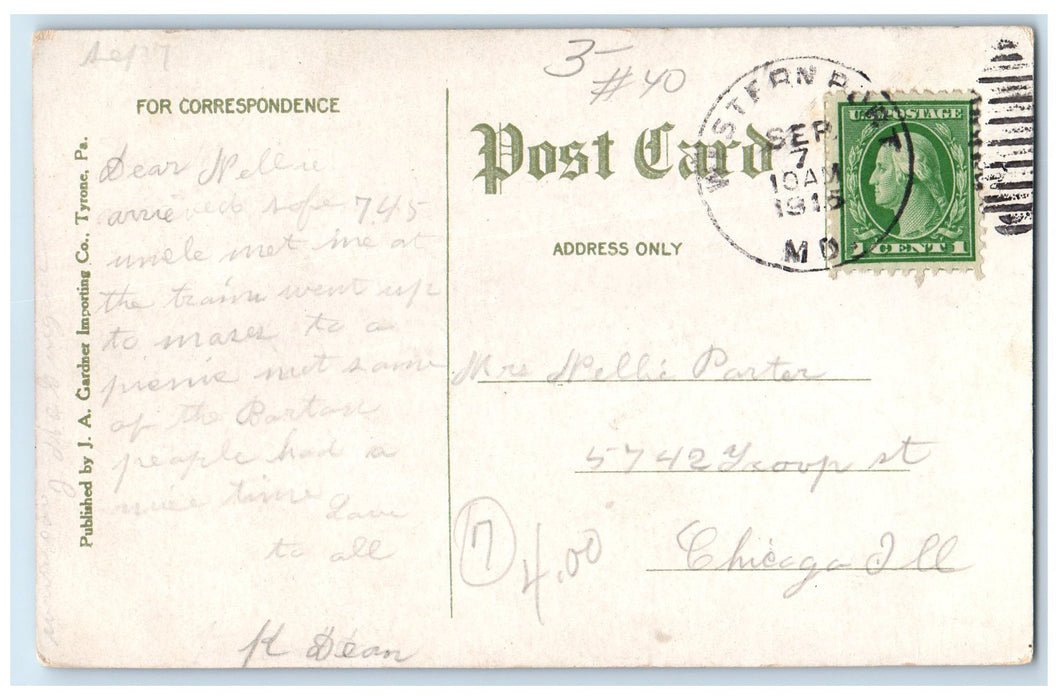 Sep 7
3-
#40
FOR CORRESPONDENCE
Post Card
WESTERNPORT
SEP
7
10AM
1915
MD.
U.S. POSTAGE
1 CENT 1
ADDRESS ONLY
Published by J. A. Gardner Importing Co., Tyrone, Pa.
Dear Nellie
arrieved safe 745
uncle met me at
the train went up
to mases to a
picnic met some
of the Barton
people had a
nice time
Love
to all
K Dean
Mrs Nellie Porter
5742 Troop st
Chicago Ill
7
4.00